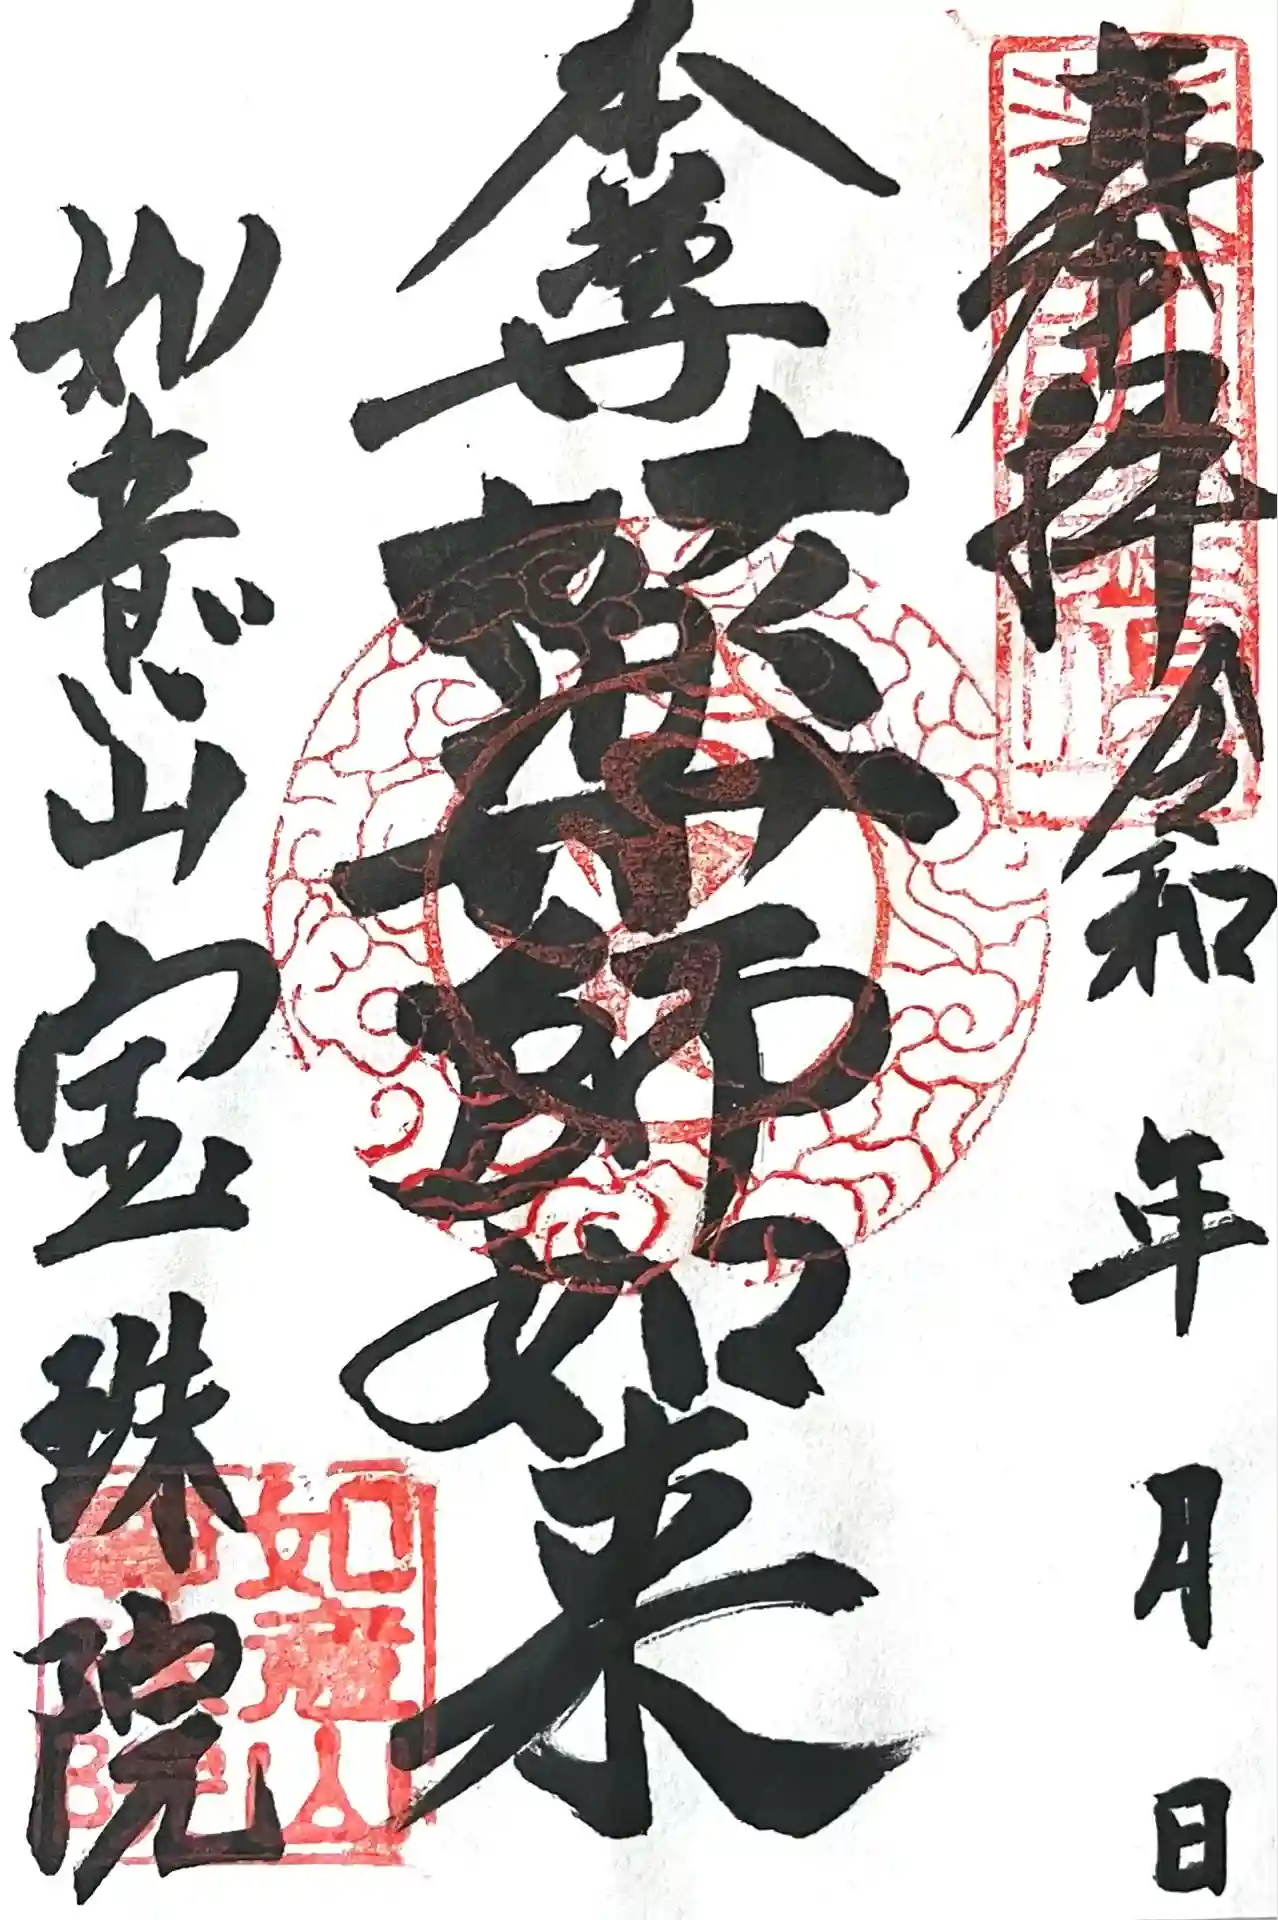 奉拝
令和 年 月 日
本尊
薬師如来
如意山
宝珠院
如意山